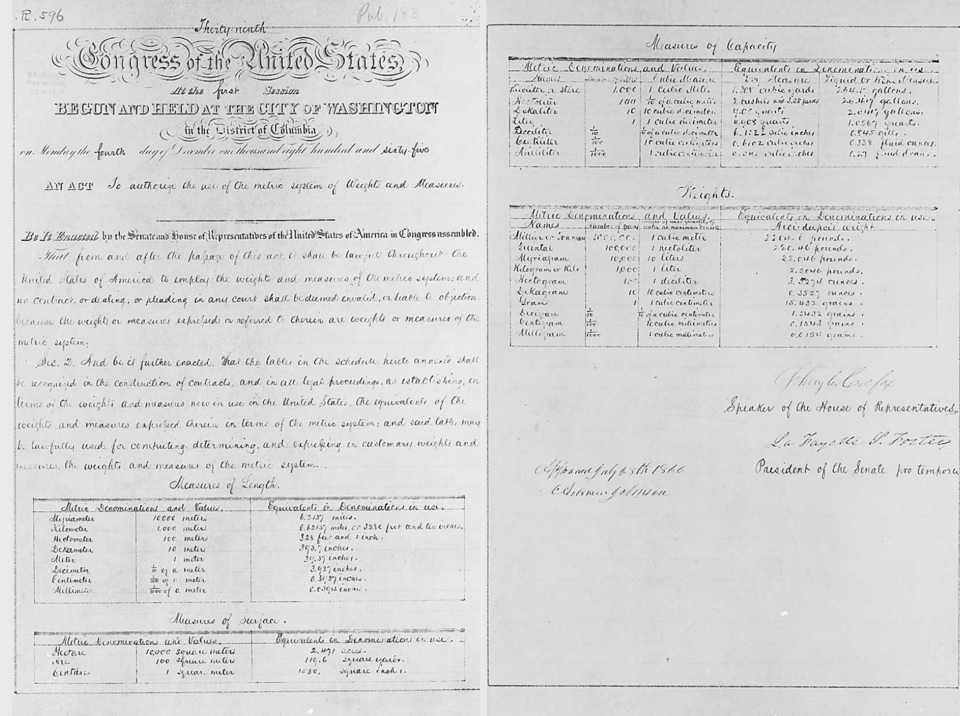 R. 596
Pub. 183
Thirty-ninth
Congress of the United States,
At the first Session
BEGUN AND HELD AT THE CITY OF WASHINGTON
in the District of Columbia
on Monday the fourth day of December one thousand eight hundred and sixty-five
AN ACT To authorize the use of the metric system of Weights and Measures.
Be It Enacted by the Senate and House of Representatives of the United States of America in Congress assembled.
That from and after the passage of this act, it shall be lawful throughout the
United States of America to employ the weights and measures of the metric system; and
no contract, or dealing, or pleading in any court shall be deemed invalid, or liable to objection
because the weights or measures expressed or referred to therein are weights or measures of the
metric system.
Sec. 2. And be it further enacted, That the tables in the schedule hereto annexed shall
be recognized in the construction of contracts, and in all legal proceedings, as establishing, in
terms of the weights and measures now in use in the United States, the equivalents of the
weights and measures expressed therein in terms of the metric system; and said tables may
be lawfully used for computing, determining, and expressing in customary weights and
measures, the weights and measures of the metric system.
Measures of Length.
Metric Denominations and Values. Equivalents in Denominations in use.
Myriameter 10,000 meters 6.2137 miles.
Kilometer 1,000 meters 0.62137 mile, or 3280 feet and ten inches.
Hectometer 100 meters 328 feet and 1 inch.
Dekameter 10 meters 393.7 inches.
Meter 1 meter 39.37 inches.
Decimeter 1/10 of a meter 3.937 inches.
Centimeter 1/100 of a meter 0.3937 inches.
Millimeter 1/1000 of a meter 0.0394 inch.
Measures of Surface.
Metric Denominations and Values. Equivalents in Denominations in use.
Hectare 10,000 square meters 2.471 acres.
Are 100 square meters 119.6 square yards.
Centiare 1 square meter 1550. square inches.
Measures of Capacity
Metric Denominations and Values. Equivalents in Denominations in use.
Names Cubic Measure Dry Measure Liquid or Wine Measure.
Kiloliter or stere 1,000 1 Cubic Meter 1.308 cubic yards 264.17 gallons.
Hectoliter 100 1/10 of a cubic meter 2 bushels and 3.35 pecks 26.417 gallons.
Dekaliter 10 10 cubic decimeters 9.08 quarts 2.6417 gallons.
Liter 1 1 cubic decimeter 0.908 quarts 1.0567 quarts.
Deciliter 1/10 1/10 of a cubic decimeter 6.1022 cubic inches 0.845 gills.
Centiliter 1/100 10 cubic centimeters 0.6102 cubic inches 0.338 fluid ounces.
Milliliter 1/1000 1 cubic centimeter 0.061 cubic inches 0.27 fluid dram.
Weights.
Metric Denominations and Values. Equivalents in Denominations in use.
Names Number of grams Avoirdupois weight
Millier or Tonneau 1,000,000 1 cubic meter 2204.6 pounds.
Quintal 100,000 1 hectoliter 220.46 pounds.
Myriagram 10,000 10 liters 22.046 pounds.
Kilogram or Kilo 1,000 1 liter 2.2046 pounds.
Hectogram 100 1 deciliter 3.5274 ounces.
Dekagram 10 10 cubic centimeters 0.3527 ounces.
Gram 1 1 cubic centimeter 15.432 grains.
Decigram 1/10 1/10 of a cubic centimeter 1.5432 grains.
Centigram 1/100 10 cubic millimeters 0.1543 grains.
Milligram 1/1000 1 cubic millimeter 0.0154 grains.
Schuyler Colfax
Speaker of the House of Representatives,
La Fayette S. Foster
President of the Senate pro tempore
Approved July 28th 1866
Andrew Johnson